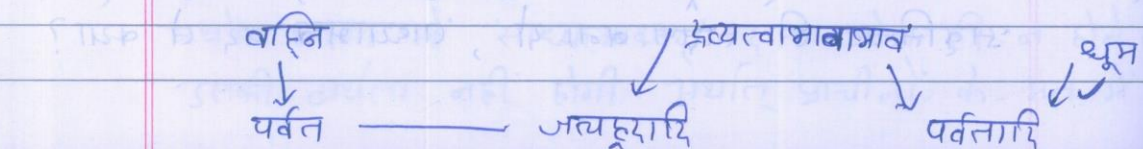 वह्नि द्रव्यत्वाभावाभाव धूम
पर्वत जलह्रदादि पर्वतादि